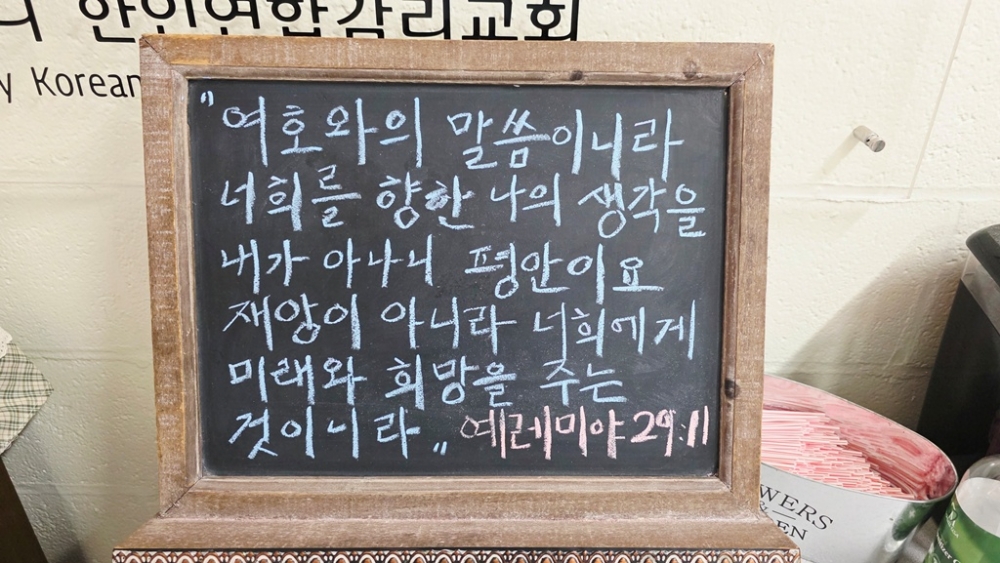 한인연합감리교회
Korean
"여호와의 말씀이니라
너희를 향한 나의 생각을
내가 아나니 평안이요
재앙이 아니라 너희에게
미래와 희망을 주는
것이니라" 예레미야 29:11